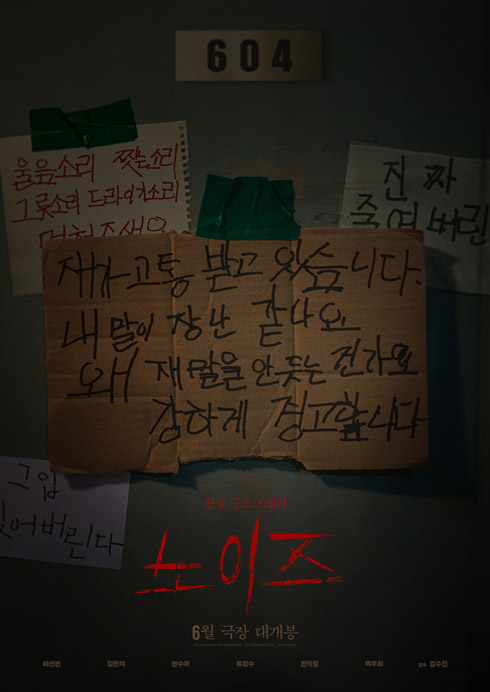 604
울음소리 찢는소리
그릇소리 드라이기소리
멈춰주세요
진짜
죽여버린
제가 고통 받고 있습니다.
내 말이 장난 같나요
왜 제 말을 안 듣는 건가요
강하게 경고합니다
그입
찢어버린다
현실 공포 스릴러
노이즈
6월 극장 대개봉
이선빈 김민석 한수아 류경수 전익령 백주희 감독 김수진